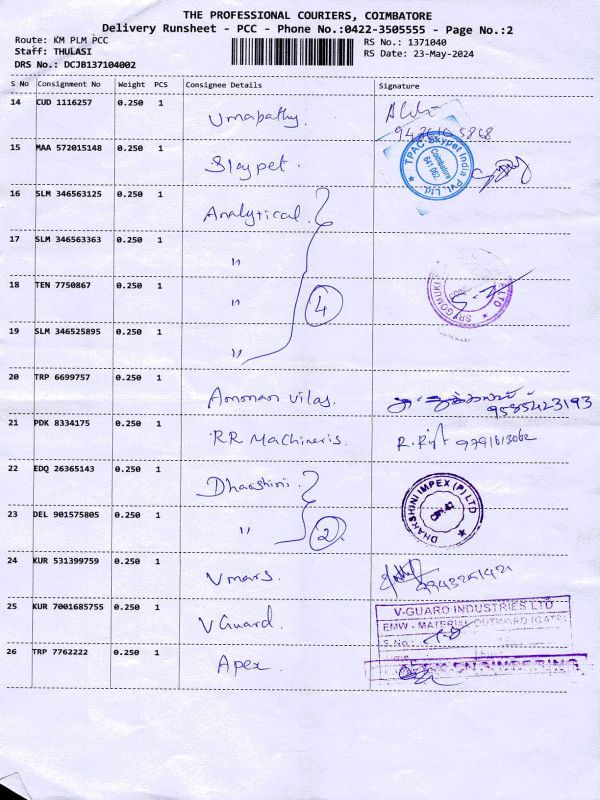 THE PROFESSIONAL COURIERS, COIMBATORE
Delivery Runsheet - PCC - Phone No.:0422-3505555 - Page No.:2
Route: KM PLM PCC
Staff: THULASI
DRS No.: DCJB137104002
RS No.: 1371040
RS Date: 23-May-2024
S No Consignment No Weight PCS Consignee Details Signature
14 CUD 1116257 0.250 1 Umapathy.
15 MAA 572015148 0.250 1 Skypet.
TPAC Skypet India Pvt. Ltd.
Coimbatore
641 062.
16 SLM 346563125 0.250 1 Analytical.
17 SLM 346563363 0.250 1 "
18 TEN 7750867 0.250 1 " 4
19 SLM 346525895 0.250 1 "
20 TRP 6699757 0.250 1 Amman Vilas.
9585423193
21 PDK 8334175 0.250 1 RR Machineris. 9791613062
22 EDQ 26365143 0.250 1 Dharshini.
DHAKSHINI IMPEX (P) LTD
23 DEL 901575805 0.250 1 " 2
24 KUR 531399759 0.250 1 Vmars. 9943261421
25 KUR 7001685755 0.250 1 V Guard.
V-GUARD INDUSTRIES LTD
EMW - MATERIAL OUTWARD (GATE)
S.No.:
26 TRP 7762222 0.250 1 Apex.
ENGINEERING